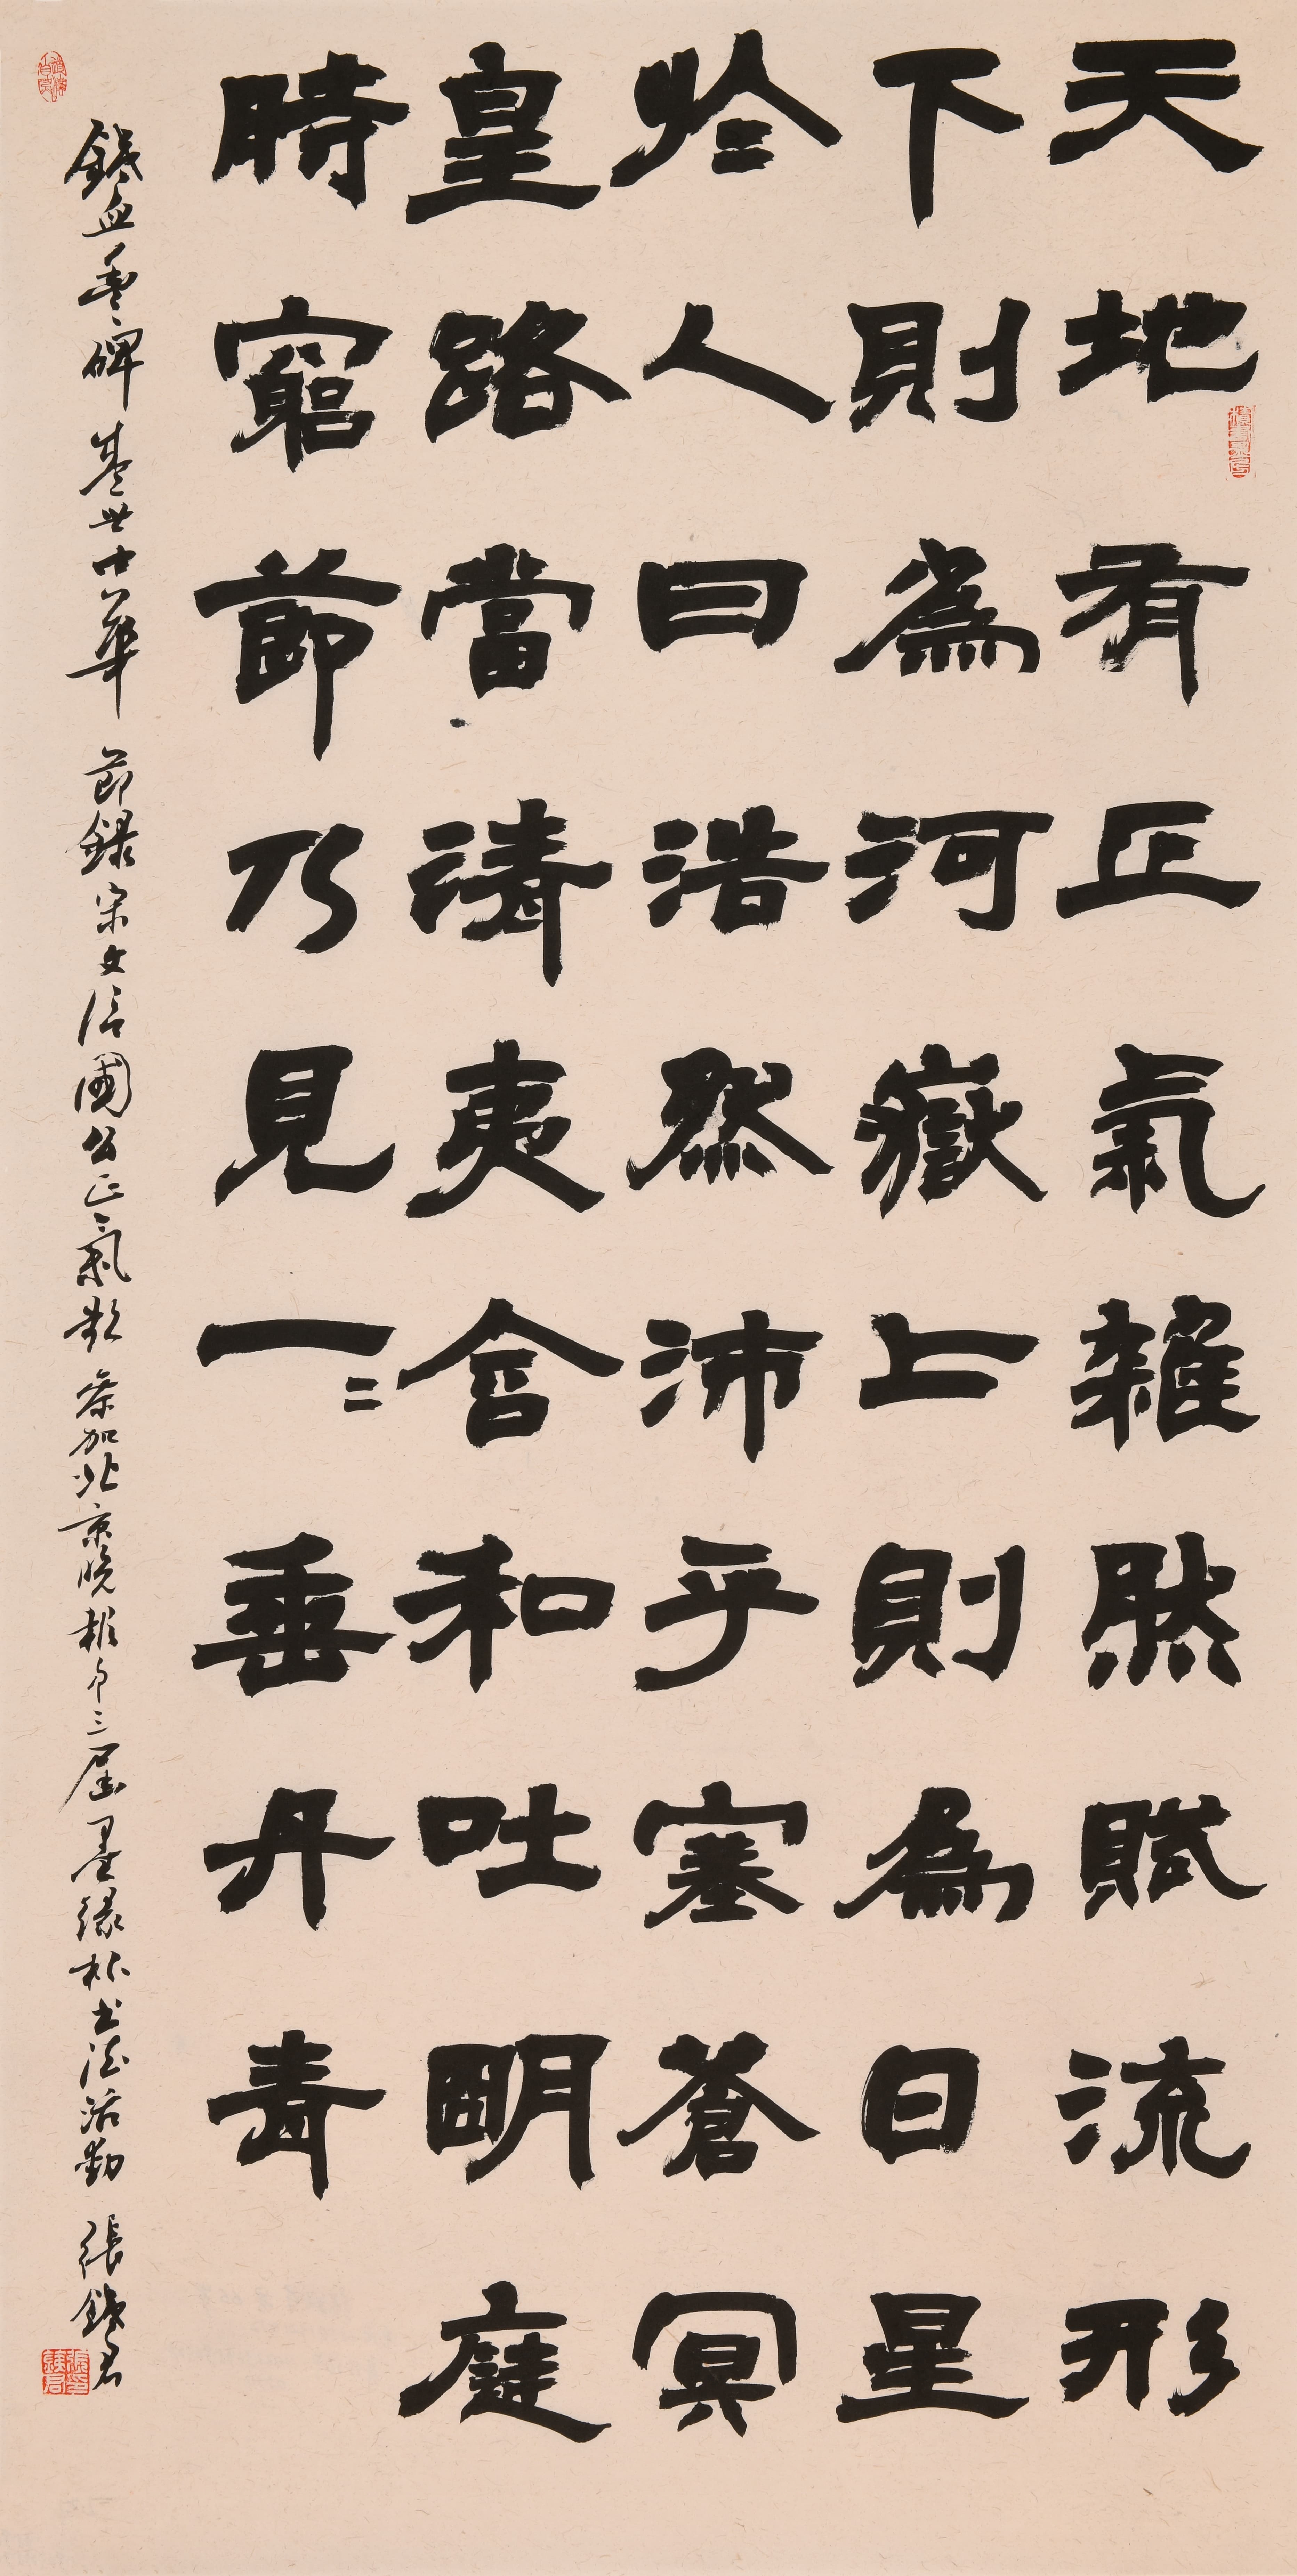 天地有正氣雜然賦流形
下則為河嶽上則為日星
於人曰浩然沛乎塞蒼冥
皇路當清夷含和吐明庭
時窮節乃見一々垂丹青
鐵血豐碑 盛世中華 節録宋文信國公正氣歌 參加北京晚報第三屆墨緣杯書法活動 張鐵君